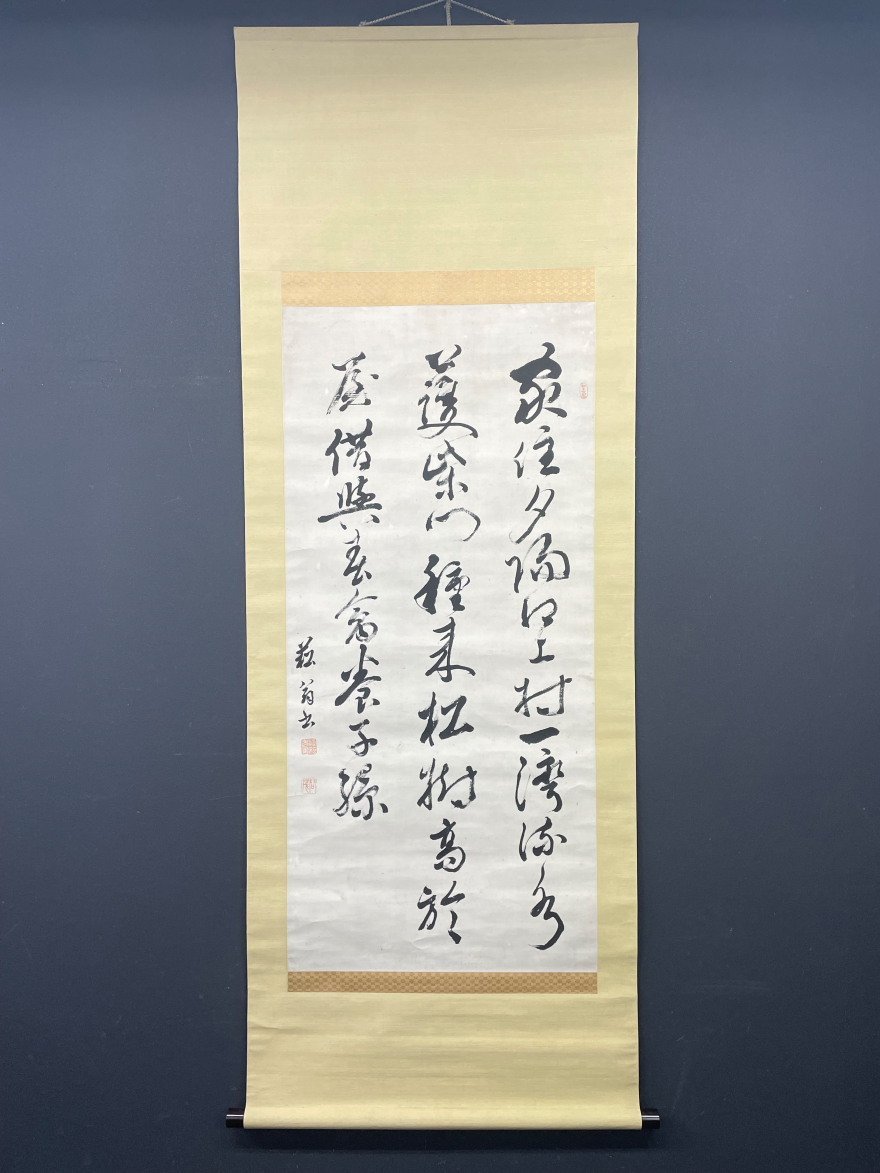 家住夕陽江上村一灣流水
護柴門種来松樹高於
屋借與春禽養子孫
菘翁書